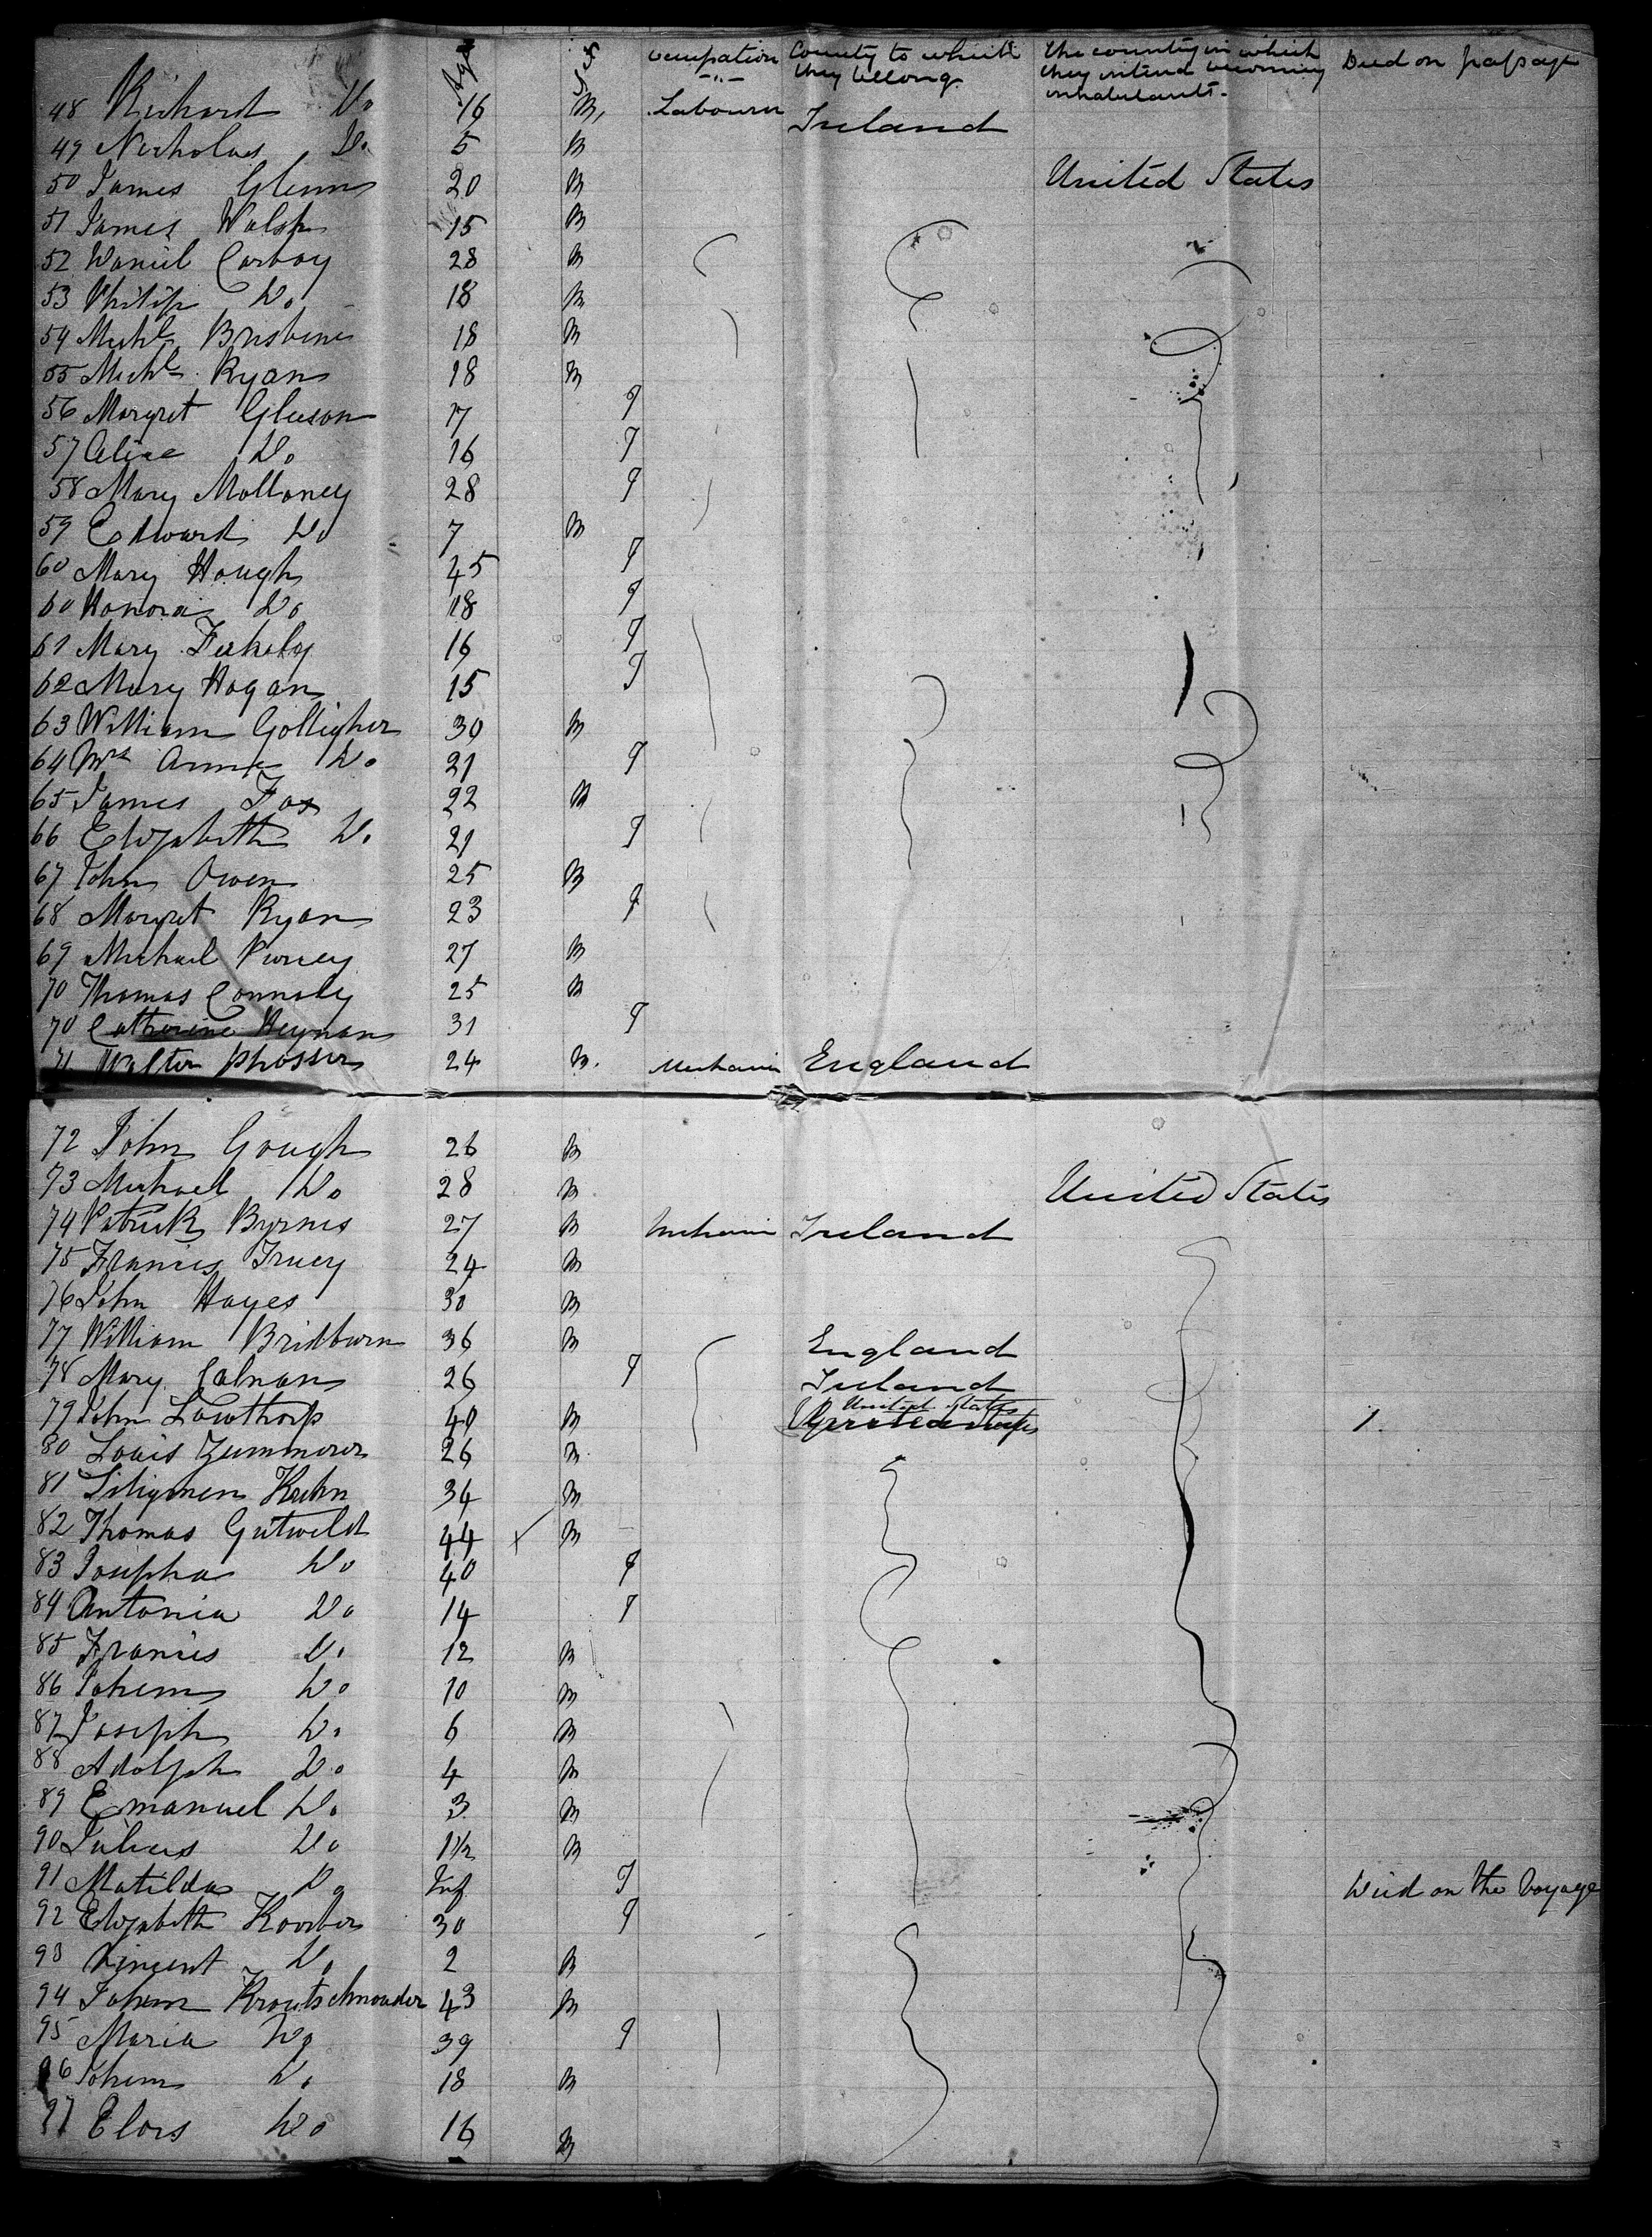 Age Sex Occupation County to which they belong. The country in which they intend becoming inhabitants. Died on passage
48 Richard Do 16 M, Labourer Ireland
49 Nicholas Do 5 M
50 James Glenn 20 M United States
51 James Walsh 15 M
52 Daniel Carboy 28 M
53 Philip Do 18 M
54 Michl Brisbine 18 M
55 Michl Ryan 18 M
56 Margret Gleeson 17 F
57 Alice Do 16 F
58 Mary Molloney 28 F
59 Edward Do 7 M
60 Mary Hough 45 F
60 Honora Do 18 F
61 Mary 16 F
62 Mary Hogan 15 F
63 William Golligher 30 M
64 Mrs Anne Do 21 F
65 James Fox 22 M
66 Elizabeth Do 21 F
67 John Owen 25 M
68 Margret Ryan 23 F
69 Michael 27 M
70 Thomas Connoly 25 M
70 Catherine Heynan 31 F
71 Walter Phosser 24 M. Mechanic England
72 John Gough 26 M
73 Michael Do 28 M United States
74 Patrick Byrnes 27 M Mechanic Ireland
75 Francis 24 M
76 John Hayes 30 M
77 William Bridburn 36 M England
78 Mary Calnan 26 F Ireland
79 John Lowthorp 40 M United States 1.
80 Louis Zummerer 26 M
81 Kuhn 34 M
82 Thomas Gutweldt 44 M
83 Josepha Do 40 F
84 Antonia Do 14 F
85 Francis Do 12 M
86 Johem Do 10 M
87 Joseph Do 6 M
88 Adolph Do 4 M
89 Emanuel Do 3 M
90 Julius Do 1½ M
91 Matilda Do Inf F Died on the Voyage
92 Elizabeth Koerber 30 F
93 Vincent Do 2 M
94 Johem Kroutschnouder 43 M
95 Maria Do 39 F
96 Johem Do 18 M
97 Elors Do 16 M